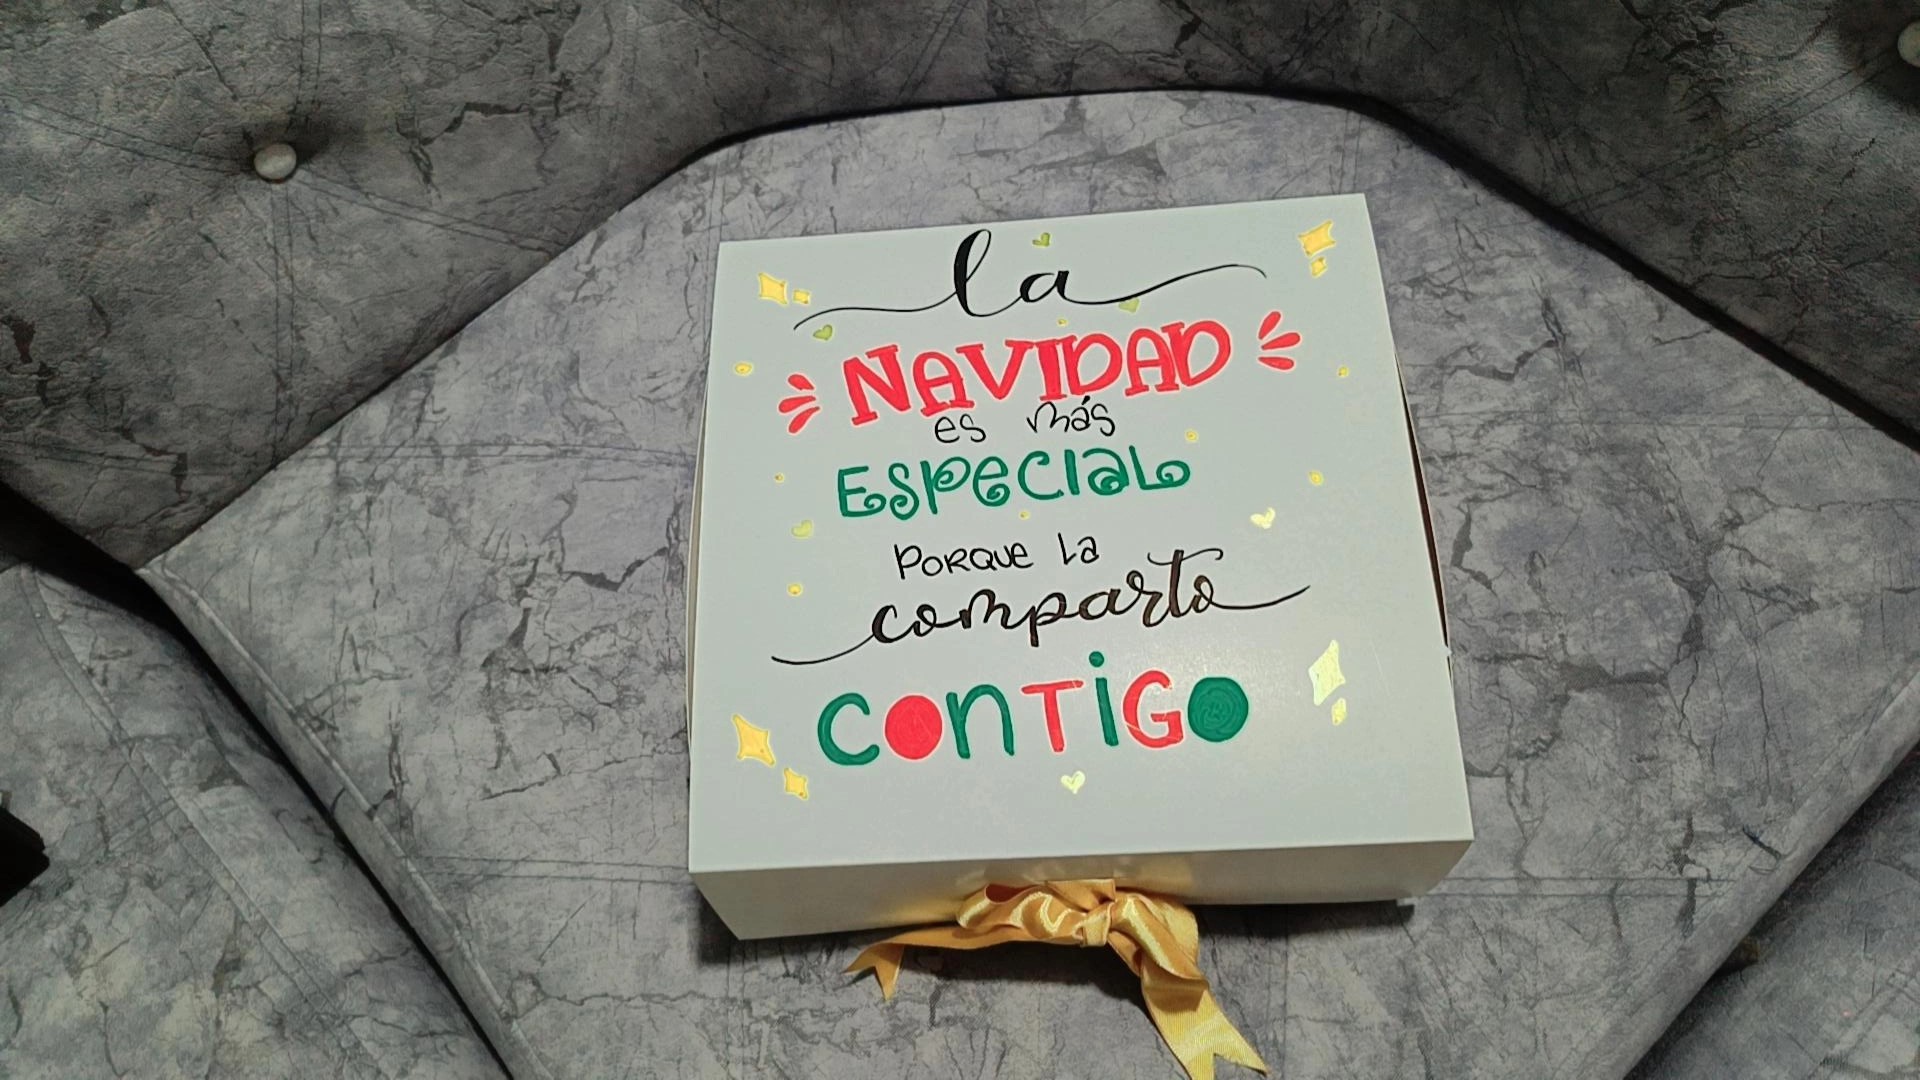 la
NAVIDAD
es más
ESPECIAL
PORQUE La
comparto
CONTIGO